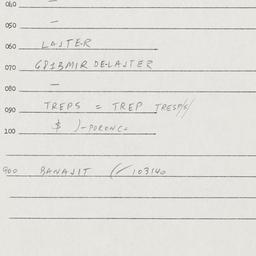 040 —
050 —
060 LASTER
070 6813MIR DE LASTER
080 —
090 TREPS = TREP TRESP/S/
100 $ )-PORONCO
900 BANASIT (/ 103140